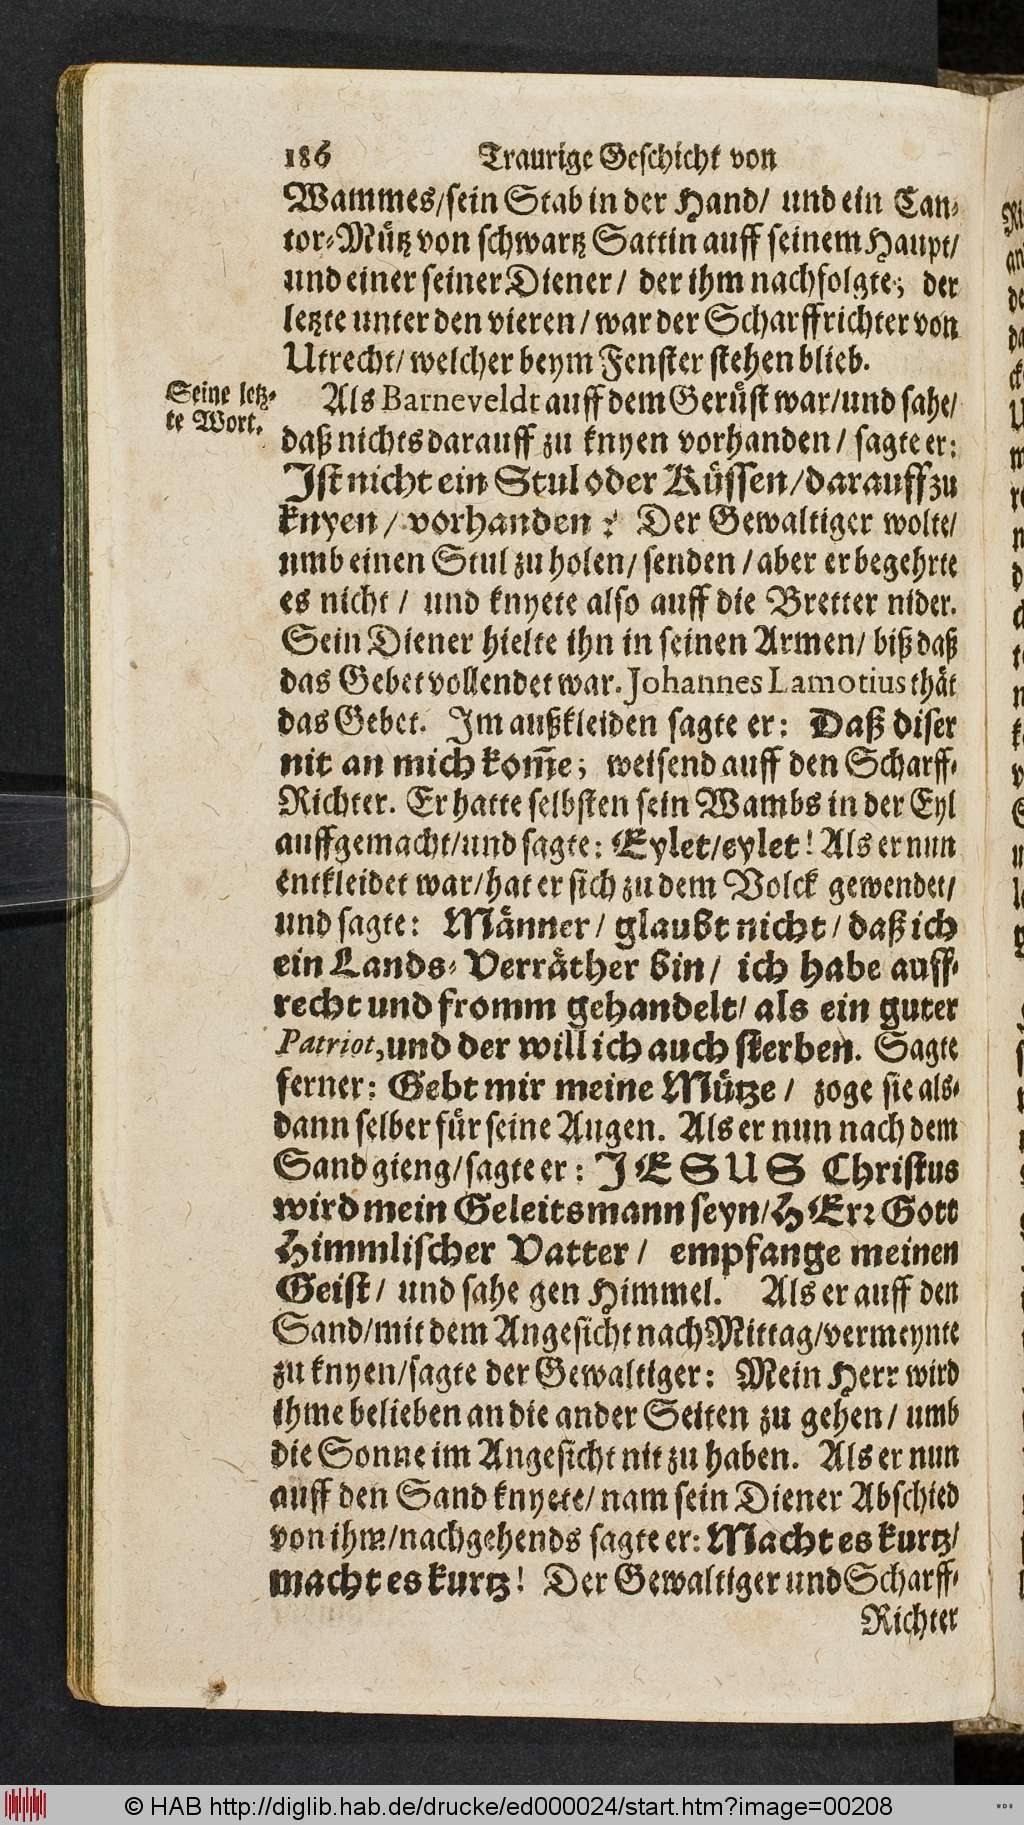 186 Traurige Geschicht von
Wammes/sein Stab in der Hand/ und ein Can-
tor-Mütz von schwartz Sattin auff seinem Haupt/
und einer seiner Diener/ der ihm nachfolgte; der
letzte unter den vieren/ war der Scharffrichter von
Utrecht/ welcher beym Fenster stehen blieb.
Seine letz-
te Wort.
Als Barneveldt auff dem Gerüst war/und sahe/
daß nichts darauff zu knyen vorhanden/ sagte er:
Ist nicht ein Stul oder Küssen/darauff zu
knyen/ vorhanden? Der Gewaltiger wolte/
umb einen Stul zu holen/ senden/ aber er begehrte
es nicht/ und knyete also auff die Bretter nider.
Sein Diener hielte ihn in seinen Armen/ biß daß
das Gebet vollendet war. Johannes Lamotius thät
das Gebet. Im außkleiden sagte er: Daß diser
nit an mich kom̄e; weisend auff den Scharff-
Richter. Er hatte selbsten sein Wambs in der Eyl
auffgemacht/und sagte: Eylet/eylet! Als er nun
entkleidet war/hat er sich zu dem Volck gewendet/
und sagte: Männer/ glaubt nicht/ daß ich
ein Lands-Verräther bin/ ich habe auff-
recht und fromm gehandelt/ als ein guter
Patriot, und der will ich auch sterben. Sagte
ferner: Gebt mir meine Mütze/ zoge sie als-
dann selber für seine Augen. Als er nun nach dem
Sand gieng/sagte er: JESUS Christus
wird mein Geleitsmann seyn/HErꝛ Gott
Himmlischer Vatter/ empfange meinen
Geist/ und sahe gen Himmel. Als er auff den
Sand/mit dem Angesicht nach Mittag/vermeynte
zu knyen/sagte der Gewaltiger: Mein Herr wird
ihme belieben an die ander Seiten zu gehen/ umb
die Sonne im Angesicht nit zu haben. Als er nun
auff den Sand knyete/ nam sein Diener Abschied
von ihm/nachgehends sagte er: Macht es kurtz/
macht es kurtz! Der Gewaltiger und Scharff-
Richter
© HAB http://diglib.hab.de/drucke/ed000024/start.htm?image=00208